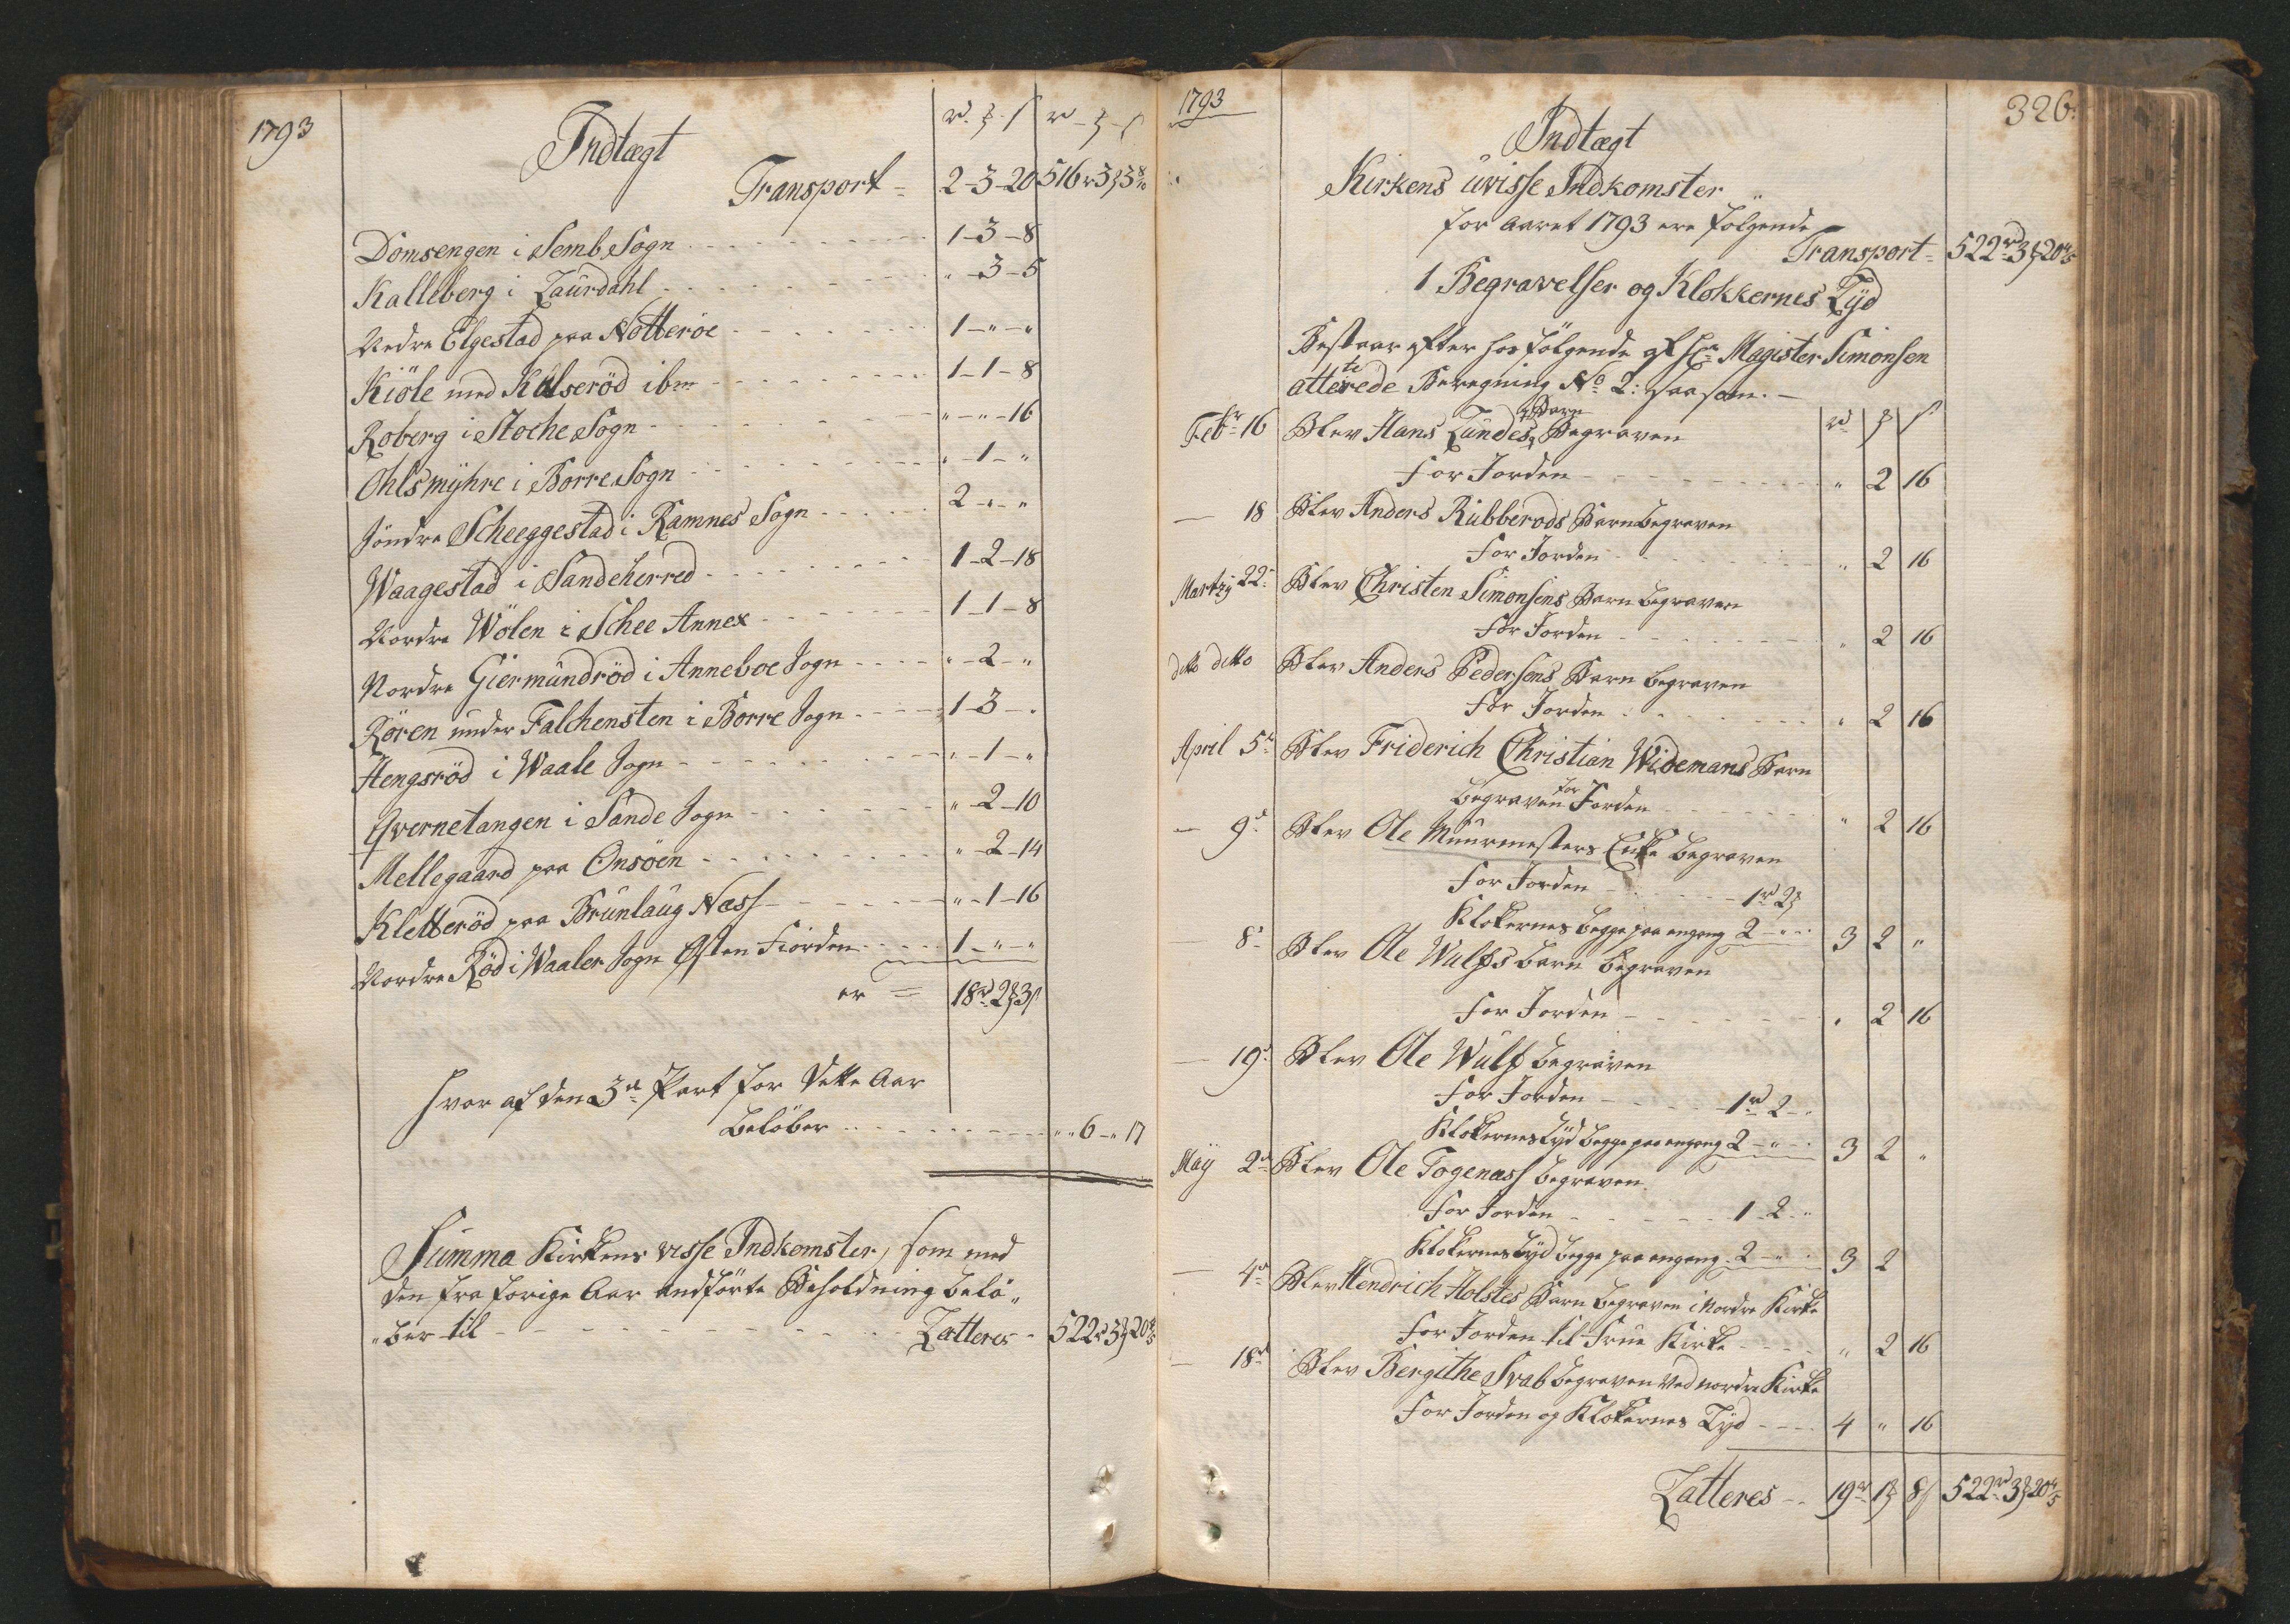 1793
Indtægt
rd. ȝ. s rd - ȝ - s
Transport - 2-3-20 516 rd 3 ȝ 3 8/10
Domsengen i Semb Sogn 1-3-8
Kalleberg i Laurdahl " -3-5
Nedre Elgestad paa Nötteröe 1-"-"
Kiöle med Kalseröd ibm 1-1-8
Roberg i Stoche Sogn "-"-16
Ohlsmyhre i Borre Sogn "-1-"
Söndre Scheeggestad i Ramnes Sogn 2-"-"
Waagestad i Sandeherred 1-2-18
Nordre Wölen i Schee Annex 1-1-8
Nordre Giermundröd i Anneboe Sogn "-2-"
Rören under Falchensten i Borre Sogn 1-3-"
Hengsröd i Waale Sogn "-1-"
Qvernetangen i Sande Sogn "-2-10
Mellegaard paa Onsöen "-2-14
Kletteröd paa Brunlaug Næss "-1-16
Nordre Röd i Waaler Sogn Østen Fiorden 1-"-"
er = 18 rd 2 ȝ 3 s
hvor af den 3die Part for dette Aar
beløber " 6-" 17
Summa Kirkens visse Indkomster, som med
den fra forige Aar andförte Beholdning belö"
"ber til Latteres - 522 rd 3 ȝ 20 4/5
1793
326.
Indtægt
Kirkens uvisse Indkomster
for aaret 1793 ere fölgende
Transport - 522 rd 3 ȝ 20 4/5
1 Begravelser og Klokkernes Lyd
Bestaar efter hosfölgende af Hr Magister Simonsen
atterede Beregning No 2: saasom. -
rd ȝ s
Febr 16 Blev Hans Lundes Barn Begraven
for Jorden " 2 16
- 18 Blev Anders Rubberods Barn begraven
for Jorden " 2 16
Martzy 22 Blev Christen Simonsens Barn begraven
for Jorden " 2 16
ditto ditto Blev Anders Pedersens Barn begraven
for Jorden " 2 16
April 5 Blev Friderich Christian Widemans Barn
begraven for Jorden " 2 16
- 9 Blev Ole Muurmesters Enke begraven
for Jorden 1 rd 2 ȝ
Klokernes begge paa engang 2-"- 3 2 "
- 8 Blev Ole Wulfs barn begraven
for Jorden " 2 16
- 19 Blev Ole Wulf begraven
for Jorden 1 rd 2-"
Klokernes Lyd begge paa engang 2-"- 3 2 "
May 2 Blev Ole Togenæss begraven
for Jorden 1-2-"
Klokernes Lyd begge paa engang. 2-"- 3 2
- 4 Blev Hendrich Holstes Barn begraven i Nordre Kirke
for Jorden til Frue Kirke " 2 16
- 18 Blev Bergithe Svab begraven ved nordre Kirke
for Jorden og Klokernes Lyd 4 " 16
Latteres - 19 rd 1 ȝ 8 s 522 rd 3 ȝ 20 4/5